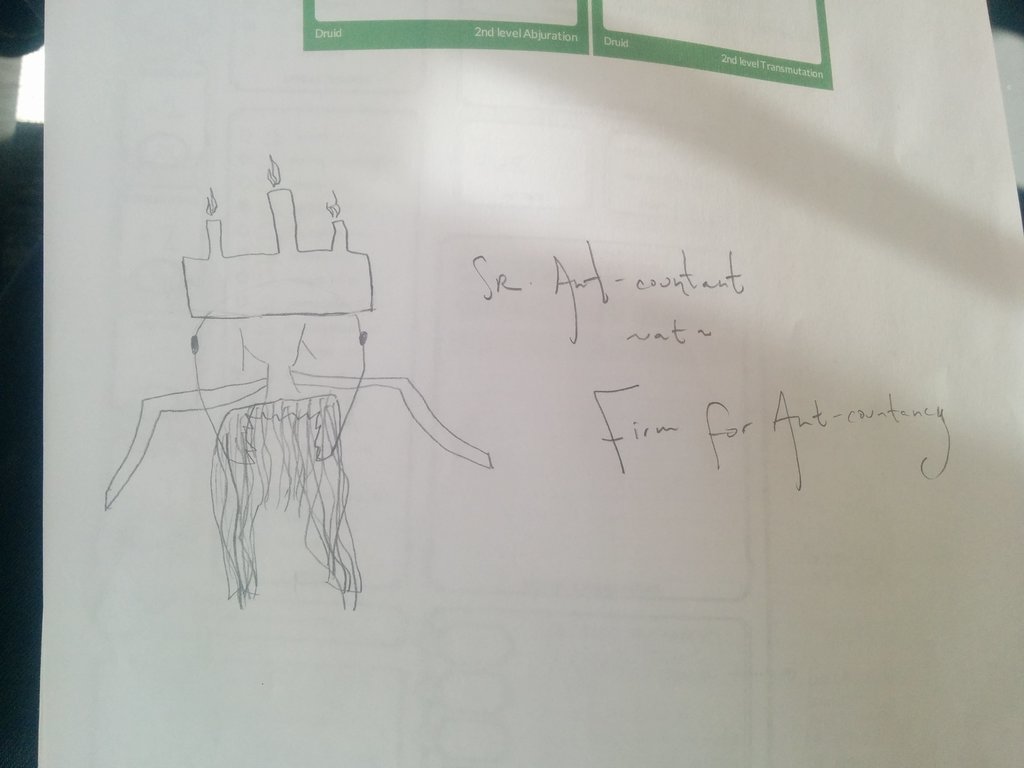 Druid 2nd level Abjuration
Druid 2nd level Transmutation
Sr. Ant-countant
~at~
Firm for Ant-countancy